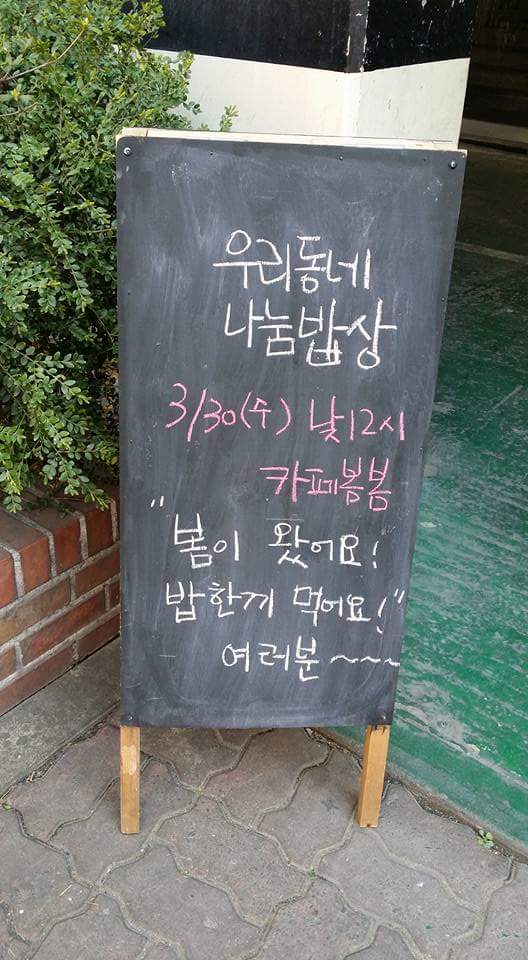 우리동네
나눔밥상
3/30(수) 낮12시
카페봄봄
"봄이 왔어요!
밥한끼 먹어요!"
여러분~~~